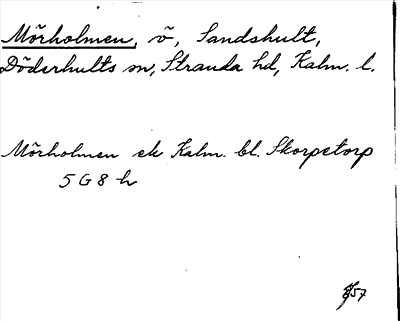 Mörholmen, ö, Sandshult,
Döderhults sn, Stranda hd, Kalm. l.
Mörholmen ek Kalm. bl. Skorpetorp
5 G 8 h
57